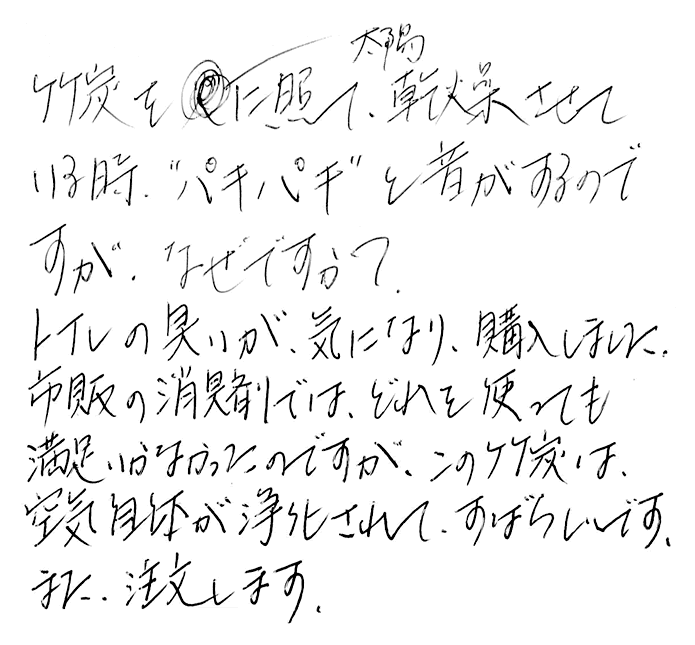 太陽
竹炭をに照て、乾燥させて
いる時、"パキパキ"と音がするので
すが、なぜですか?
トイレの臭いが、気になり、購入しました。
市販の消臭剤では、どれを使っても
満足いかなかったのですが、この竹炭は、
空気自体が浄化されて、すばらしいです。
また、注文します。